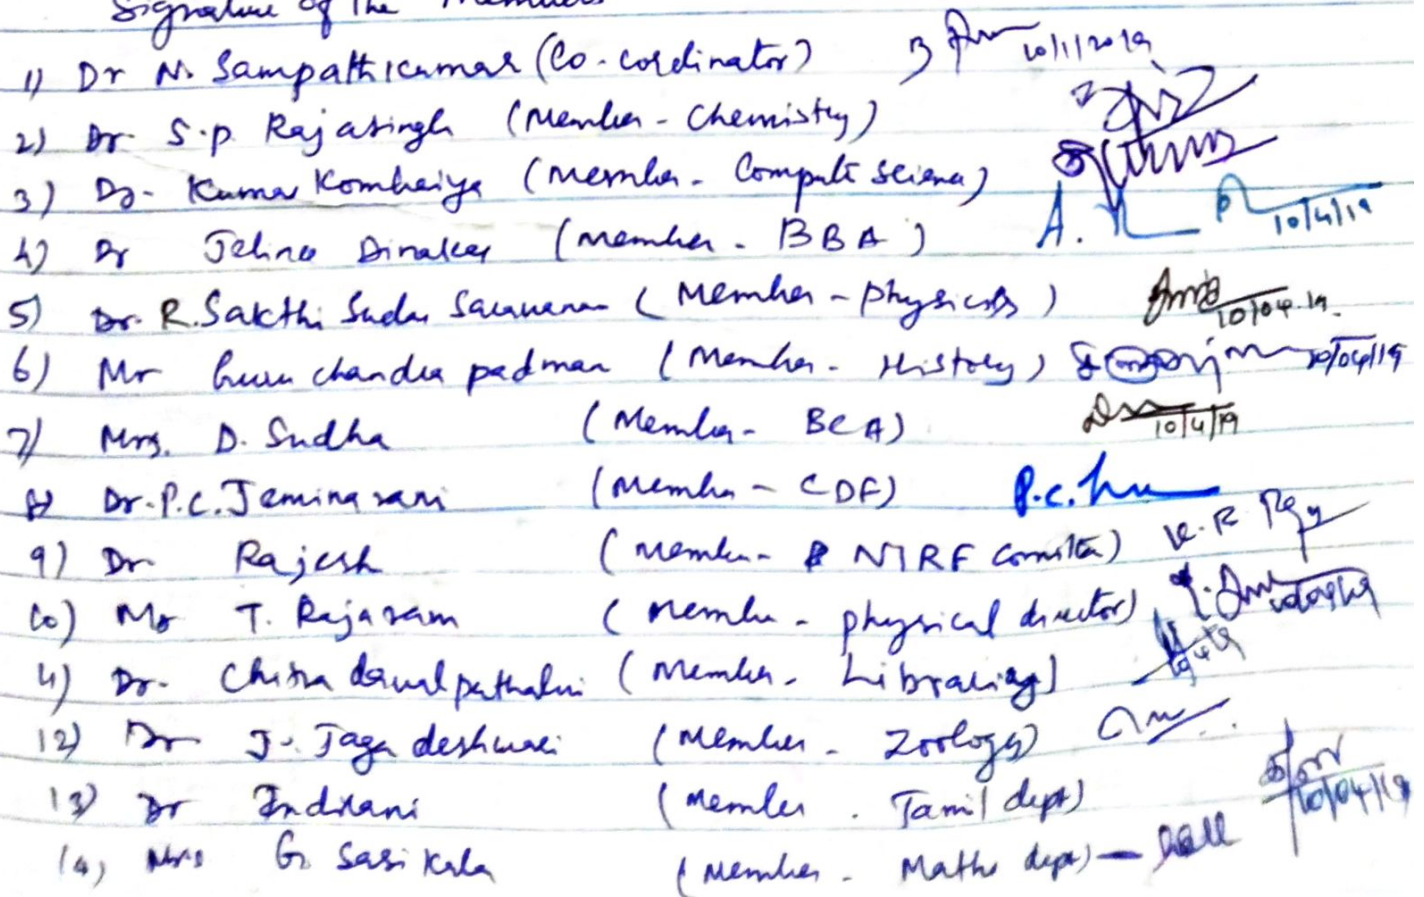 Signature of the Members
1) Dr N. Sampathkumar (Co-cordinator) 10/1/2019
2) Dr. S.P. Rajasingh (Member - Chemistry)
3) Dr. Kumar Kombaiya (Member - Compute Science)
4) Dr Jelina Dinaker (Member - BBA) A. 10/4/19
5) Dr. R. Sakthi Sudar Saravanan (Member - physics) 10/04.19.
6) Mr Guru chandra padman (Member - History) 10/04/19
7) Mrs. D. Sudha (Member - BCA) 10/4/19
8) Dr. P.C. Jeminarani (Member - CDF) P.C.
9) Dr. Rajesh (Member - NIRF Committee) K.R
10) Mr T. Rajaram (Member - physical director)
11) Dr. Chitra (Member - Library)
12) Dr J. Jagadeshwari (Member - Zoology)
13) Dr Indirani (Member - Tamil dept) 10/04/19
14) Mrs G. Sasikala (Member - Maths dept) -